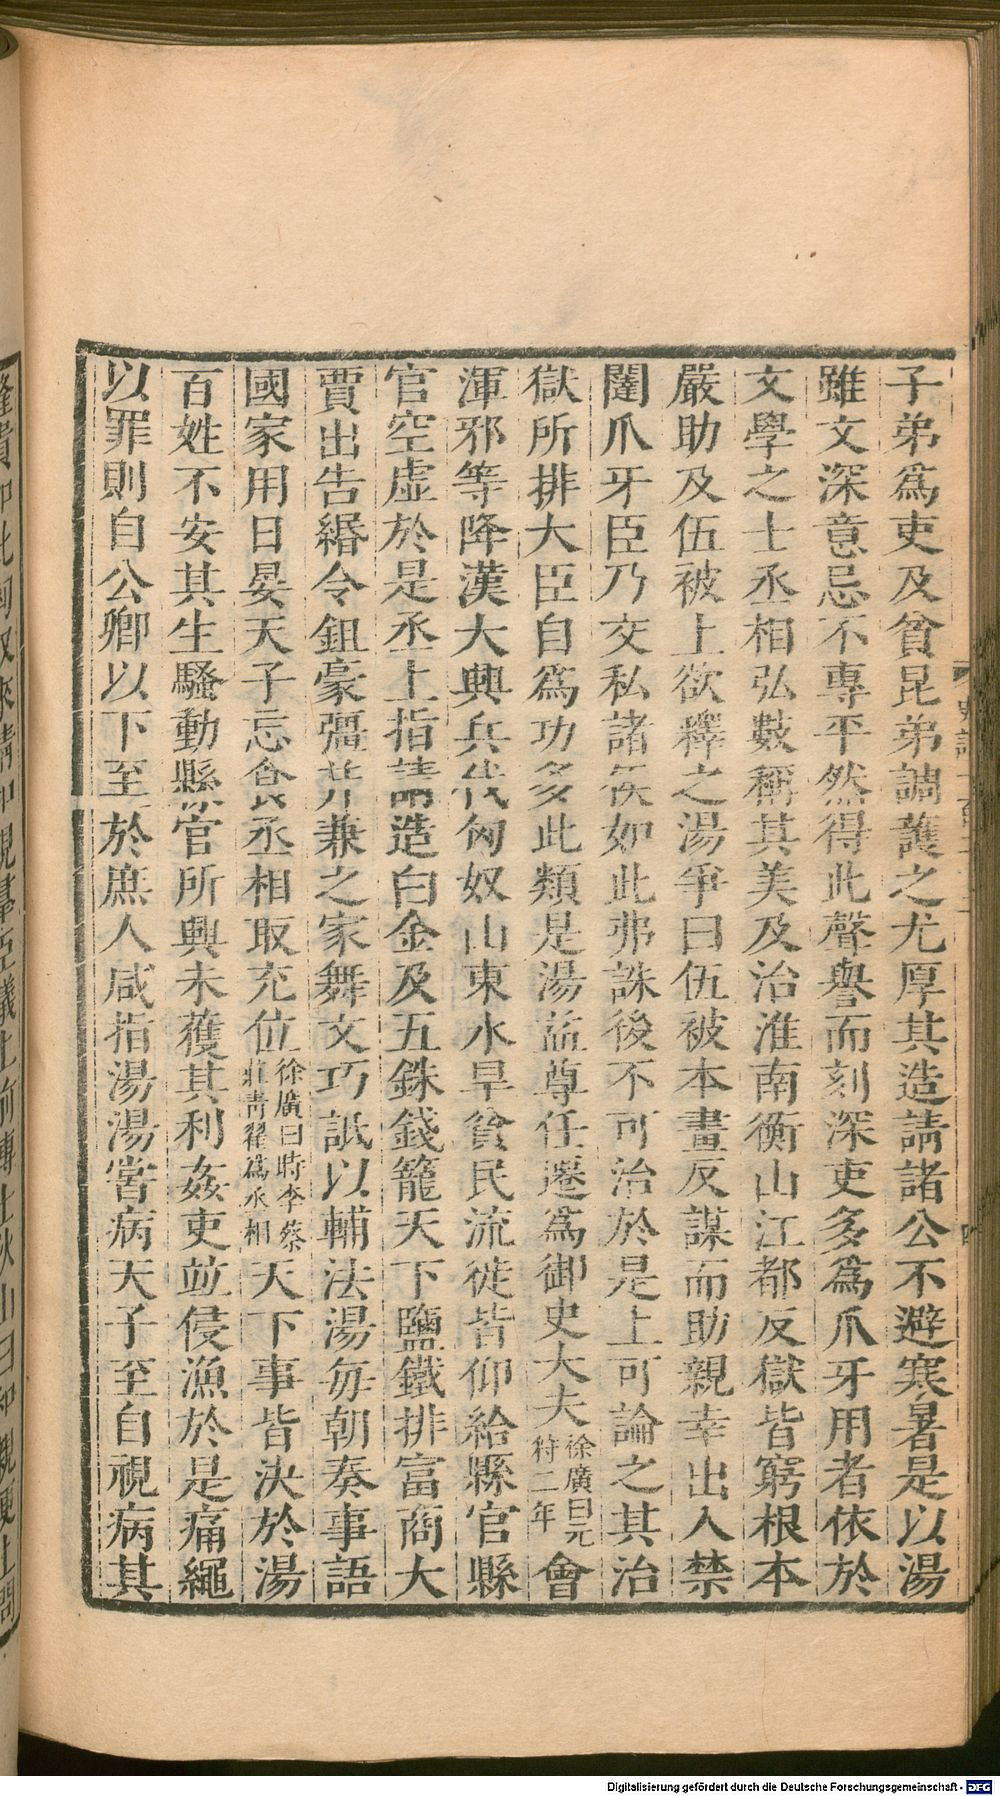 子弟爲吏及貧昆弟調護之尤厚其造請諸公不避寒暑是以湯
雖文深意忌不專平然得此聲譽而刻深吏多爲爪牙用者依於
文學之士丞相弘數稱其美及治淮南衡山江都反獄皆窮根本
嚴助及伍被上欲釋之湯爭曰伍被本畫反謀而助親幸出入禁
闥爪牙臣乃交私諸侯如此弗誅後不可治於是上可論之其治
獄所排大臣自爲功多此類是湯益尊任遷爲御史大夫徐廣曰元狩二年會
渾邪等降漢大興兵伐匈奴山東水旱貧民流徙皆仰給縣官縣
官空虛於是丞上指請造白金及五銖錢籠天下鹽鐵排富商大
賈出告緡令鉏豪彊并兼之家舞文巧詆以輔法湯每朝奏事語
國家用日晏天子忘食丞相取充位徐廣曰時李蔡莊青翟爲丞相天下事皆決於湯
百姓不安其生騷動縣官所興未獲其利姦吏竝侵漁於是痛繩
以罪則自公卿以下至於庶人咸指湯湯嘗病天子至自視病其
Digitalisierung gefördert durch die Deutsche Forschungsgemeinschaft - DFG